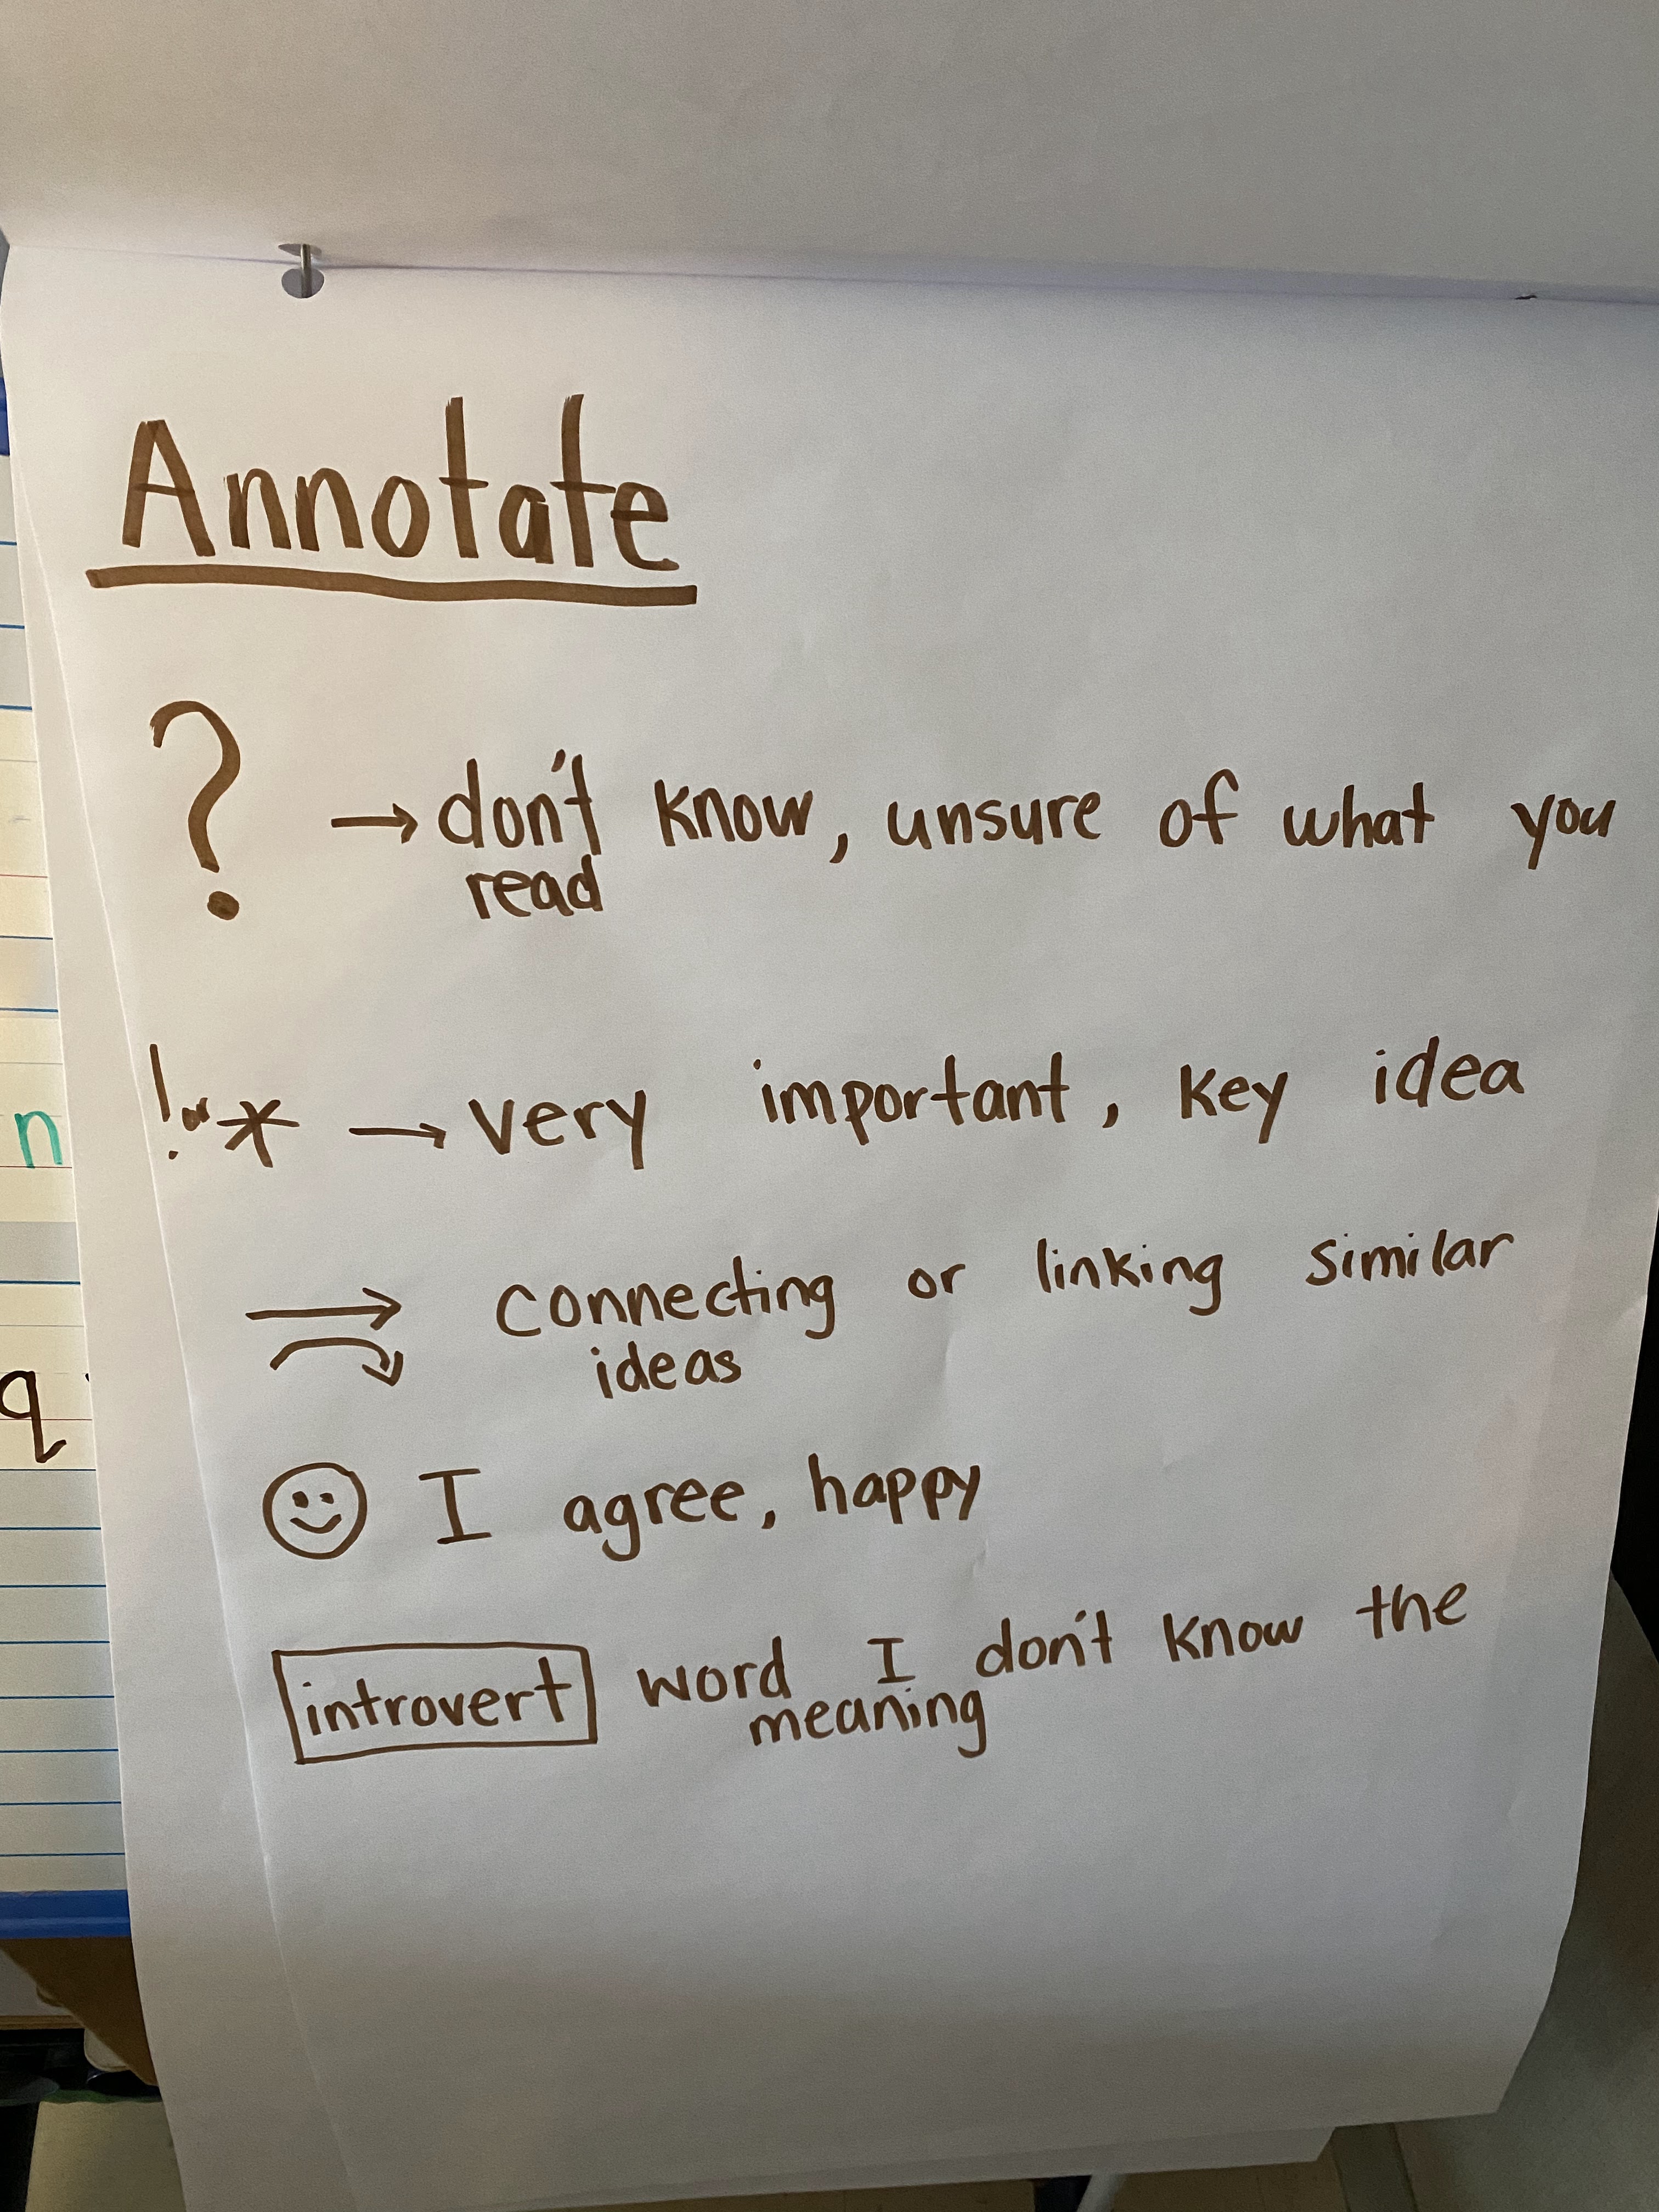 Annotate
? → don't know, unsure of what you
read
! or * → very important, key idea
→ connecting or linking similar
ideas
☺ I agree, happy
introvert word I don't know the
meaning
n
q